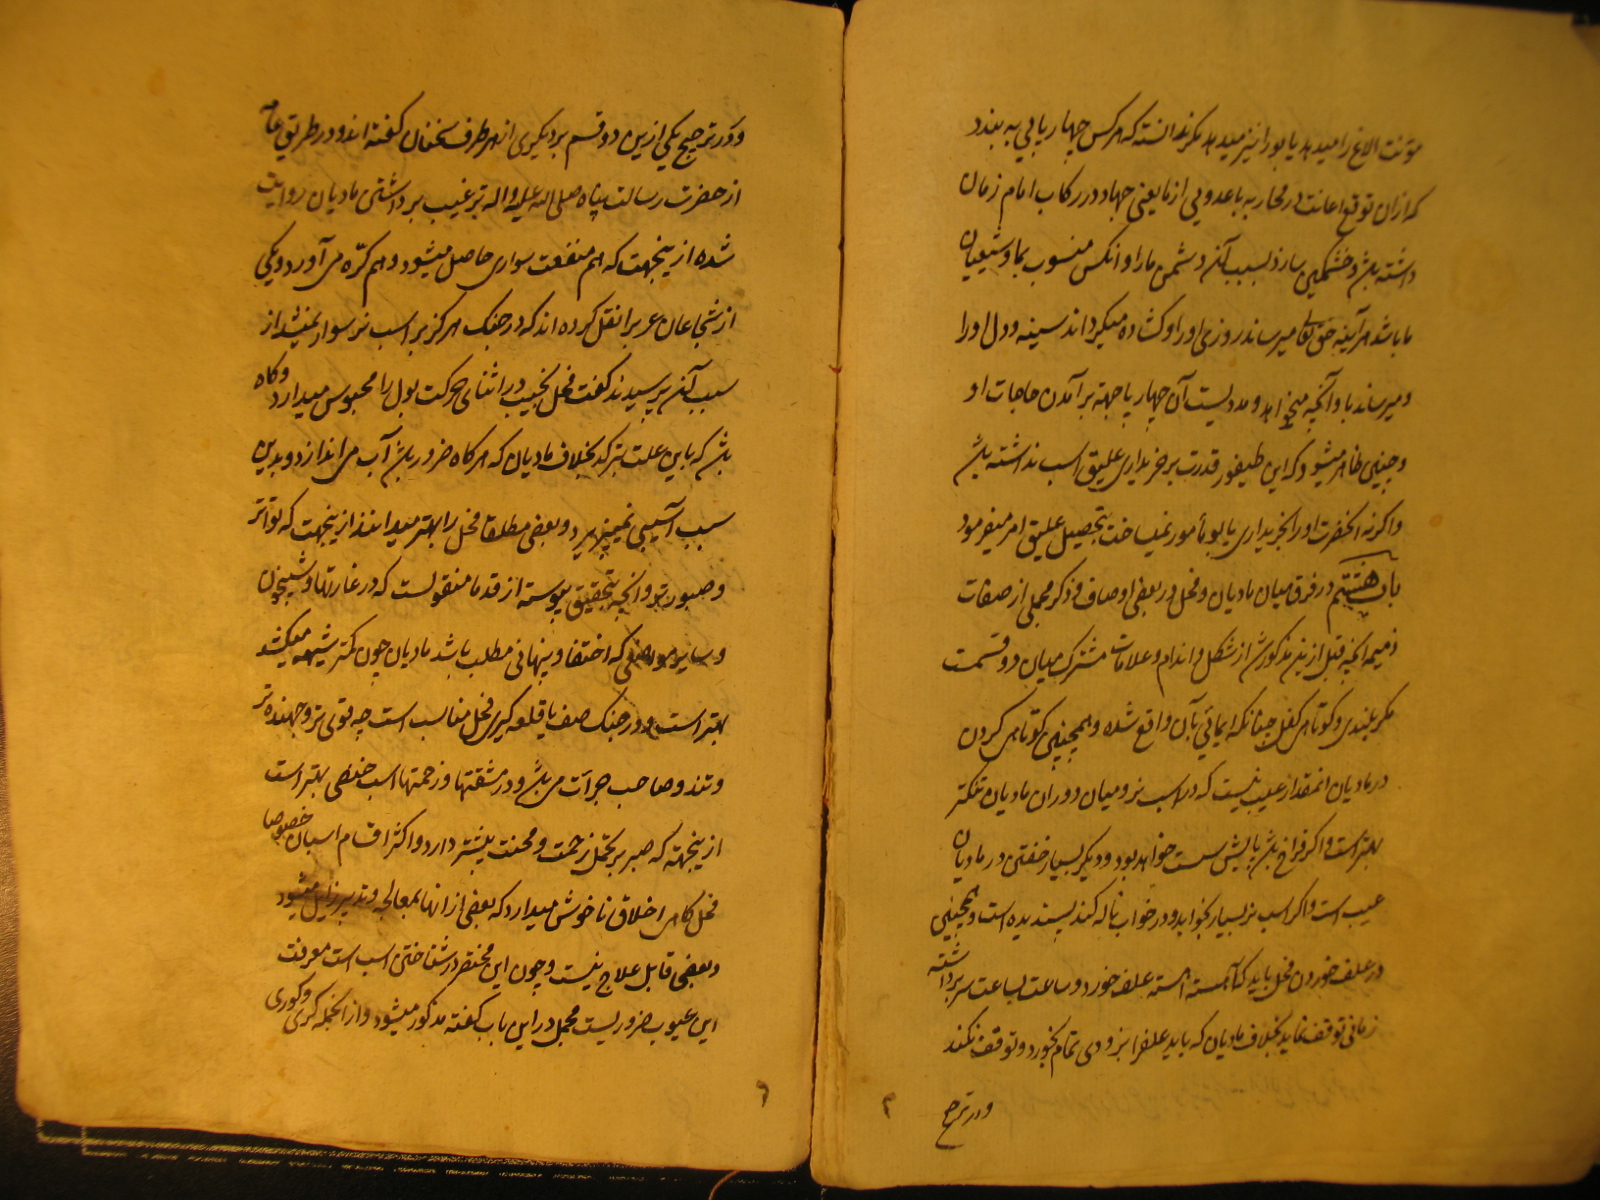 مؤنت الاغ را میدهد یابو را نیز میدهد مگر ندانسته که هر کس چهارپایی به بندد
که ازان توقع اعانت در محاربه با عدویی از ما یعنی جهاد در رکاب امام زمان
داشته باشد و خشمگین سازد بسبب آن دشمن ما را و انکس منسوب بما و شیعیان
ما باشد هر آینه حق تعالی میرساند روزی او را و گشاده میگرداند سینه و دل او را
و میرساند باو آنچه میخواهد و مددیست آن چهارپا جهة برآمدن حاجات او
و چنین ظاهر میشود که این طیفور قدرت بر خریداری علیق اسب نداشته باشد
و اگرنه انحضرت او را بخریداری یابو مأمور نمیساخت بتحصیل علیق امر میفرمود
باب هشتم در فرق میان مادیان و فحل در بعضی اوصاف و ذکر مجملی از صفات
ذمیمه انچه قبل ازین مذکور شد از شکل و اندام و علامات مشترک میان دو قسمت
مگر بلندی و کوتاهی کفل چنانکه ایمائی بآن واقع شده و همچنین کوتاهی گردن
در مادیان انمقدار عیب نیست که در اسب نر و میان دو ران مادیان تنگتر
بهتر است و اگر فراخ باشد پایش سست خواهد بود و دیگر بسیار خفتن در مادیان
عیب است و اگر اسب نر بسیار بخوابد و در خواب ناله کند پسندیده است و همچنین
در علف خوردن فحل باید که آهسته اهسته علف خورد و ساعت بساعت سر برداشته
زمانی توقف نماید بخلاف مادیان که باید علف را بزودی تمام بخورد و توقف نکند
و در ترجیح
و در ترجیح یکی ازین دو قسم بر دیگری از هر طرف سخنان گفته اند و در طریق عامه
از حضرت رسالت پناه صلی الله علیه واله ترغیب برداشتن مادیان روایت
شده از ینجهت که هم منفعت سواری حاصل میشود و هم کرّه می آورد و یکی
از شجاعان عرب را نقل کرده اند که در جنک هرگز بر اسب نر سوار نمیشد از
سبب آن پرسیدند گفت فحل نجیب در اثنای حرکت بول را محبوس میدارد و گاه
باشد که باین علت بترکد بخلاف مادیان که هر گاه ضرور باشد آب می اندازد و بدین
سبب آسیبی نمیپذیرد و بعضی مطلقا فحل را بهتر میدانند از ینجهت که تواناتر
و صبورتر و انچه بتحقیق پیوسته از قدما منقولست که در غارتها و شبیخون
و سایر مواضعی که اختفا و پنهانی مطلب باشد مادیان چون کمتر شیهه میکشد
بهتر است و در جنک صف یا قلعه گیری فحل مناسب است چه قوی تر و جهنده تر
و تند و صاحب جرأت می باشد و در مشقتها و زحمتها اسب خصی بهتر است
از ینجهة که صبر بر تحمل زحمت و محنت بیشتر دارد و اکثر اقسام اسبان خصوصا
فحل گاهی اخلاق ناخوش میدارد که بعضی از انها بمعالجه و تدبیر زایل میشود
و بعضی قابل علاج نیست و چون این مختصر در شناختن اسب است معرفت
این عیوب ضروریست مجمل در این باب گفته مذکور میشود و از انجمله کری و کوری